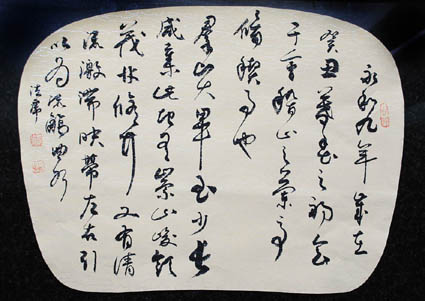 永和九年歲在
癸丑暮春之初會
于會稽山之蘭亭
脩稧事也
羣賢畢至少長
咸集此地有崇山峻領
茂林脩竹又有清
流激湍映帶左右引
以為流觴曲水